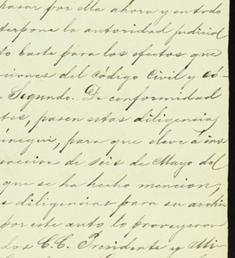 pasar por ella ahora y en todo
terponga la autoridad judicial
to basta para los efectos que
ciones del Código Civil y có-
Segundo. De conformidad
tos, pasen estas diligencias
para que eleve á ins
de seis de Mayo del
que se ha hecho mencion,
e diligencias para su archi
por este auto lo proveyeron
dos C.C. Presidente y Mi-